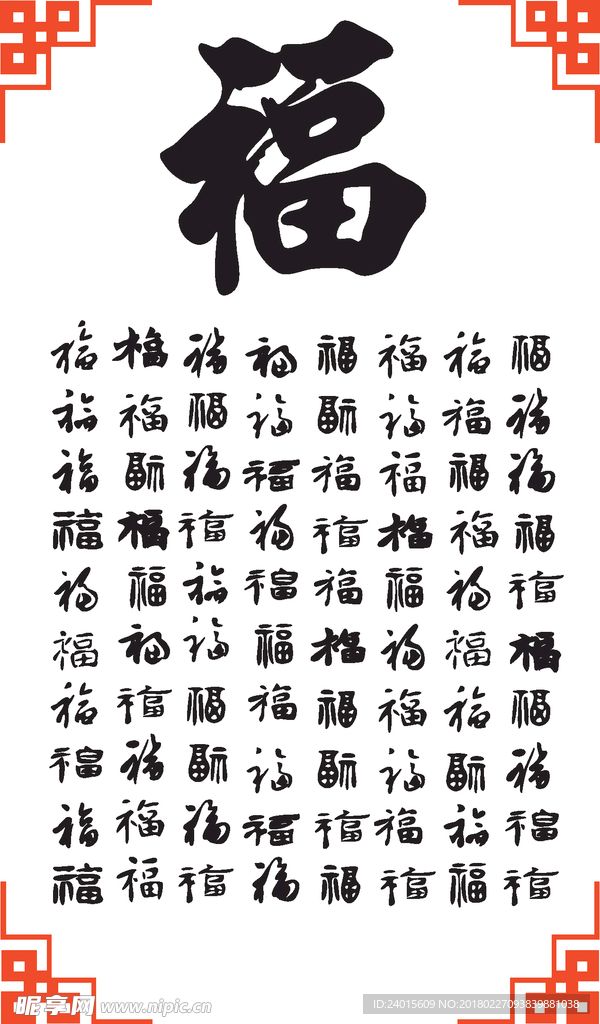 福
福 福 福 福 福 福 福 福
福 福 福 福 福 福 福 福
福 福 福 福 福 福 福 福
福 福 福 福 福 福 福 福
福 福 福 福 福 福 福 福
福 福 福 福 福 福 福 福
福 福 福 福 福 福 福 福
福 福 福 福 福 福 福 福
福 福 福 福 福 福 福 福
福 福 福 福 福 福 福 福
昵享网 www.nipic.cn
ID:24015609 NO:20180227093839881038